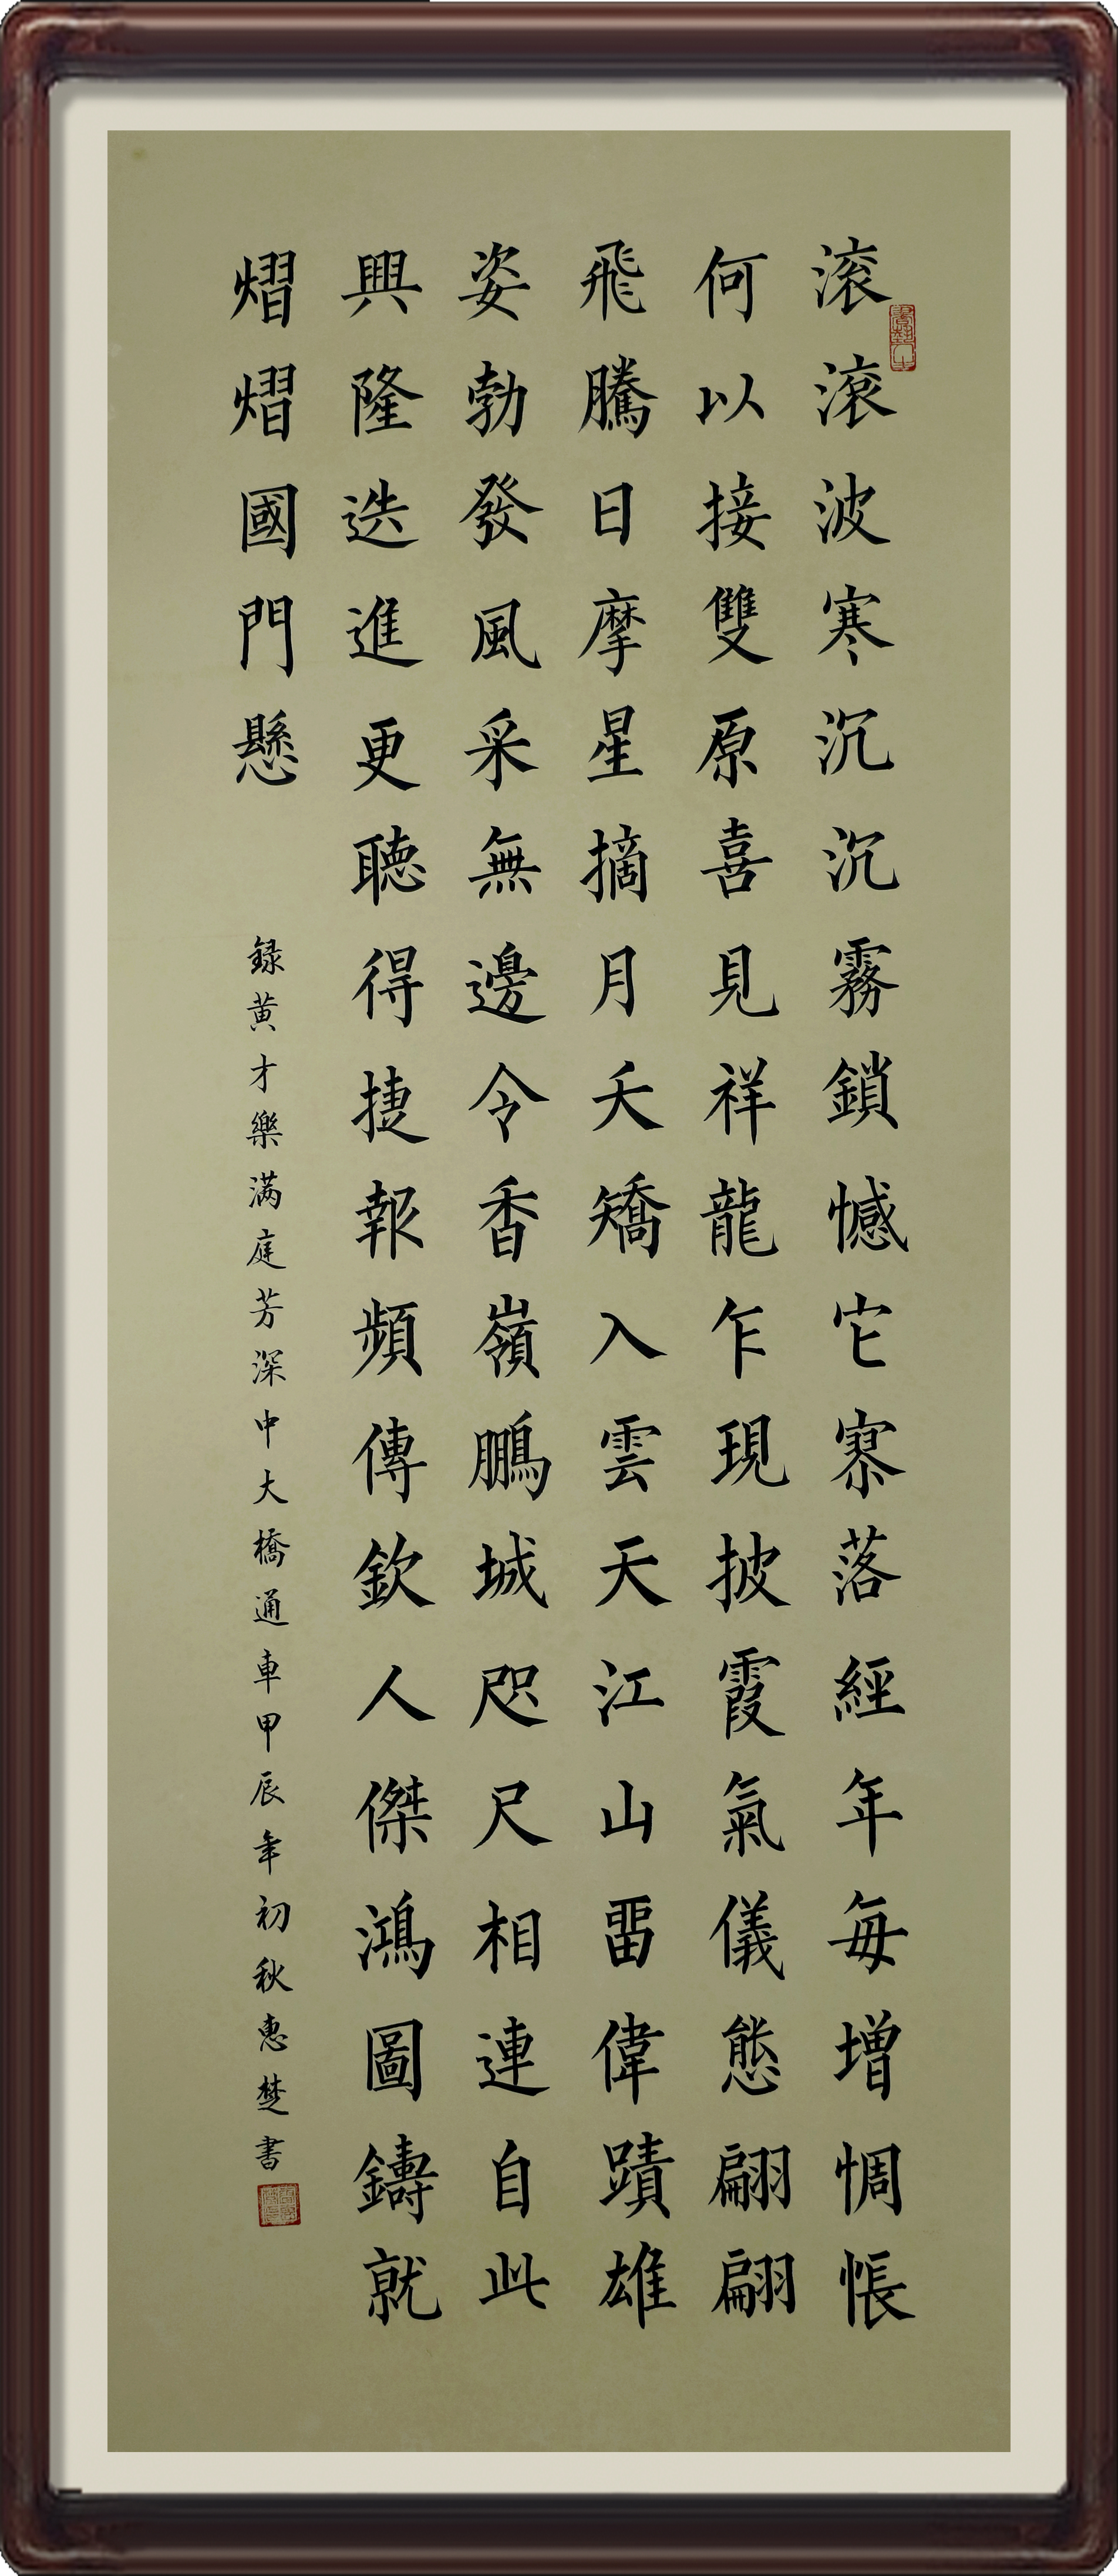 滚滚波寒沉沉霧鎖憾它寮落經年每增惆悵
何以接雙原喜見祥龍乍現披霞氣儀態翩翩
飛騰日摩星摘月夭矯入雲天江山畱偉蹟雄
姿勃發風采無邊令香嶺鵬城咫尺相連自此
興隆迭進更聽得捷報頻傳欽人傑鴻圖鑄就
熠熠國門懸
録黄才樂滿庭芳深中大橋通車甲辰年初秋惠楚書